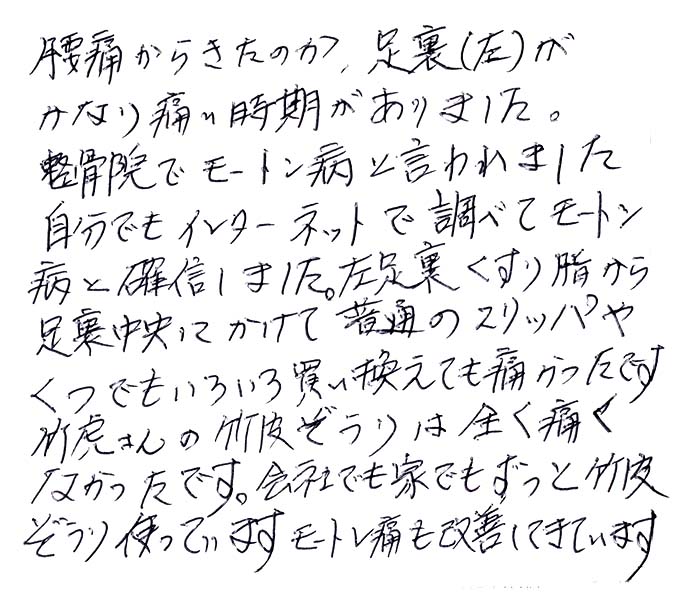 腰痛からきたのか、足裏(左)が
かなり痛い時期がありました。
整骨院でモートン病と言われました
自分でもインターネットで調べてモートン
病と確信しました。左足裏くすり脂から
足裏中央にかけて普通のスリッパや
くつでもいろいろ買い換えても痛かったです
竹虎さんの竹皮ぞうりは全く痛く
なかったです。会社でも家でもずっと竹皮
ぞうり使っていますモートン痛も改善してきています